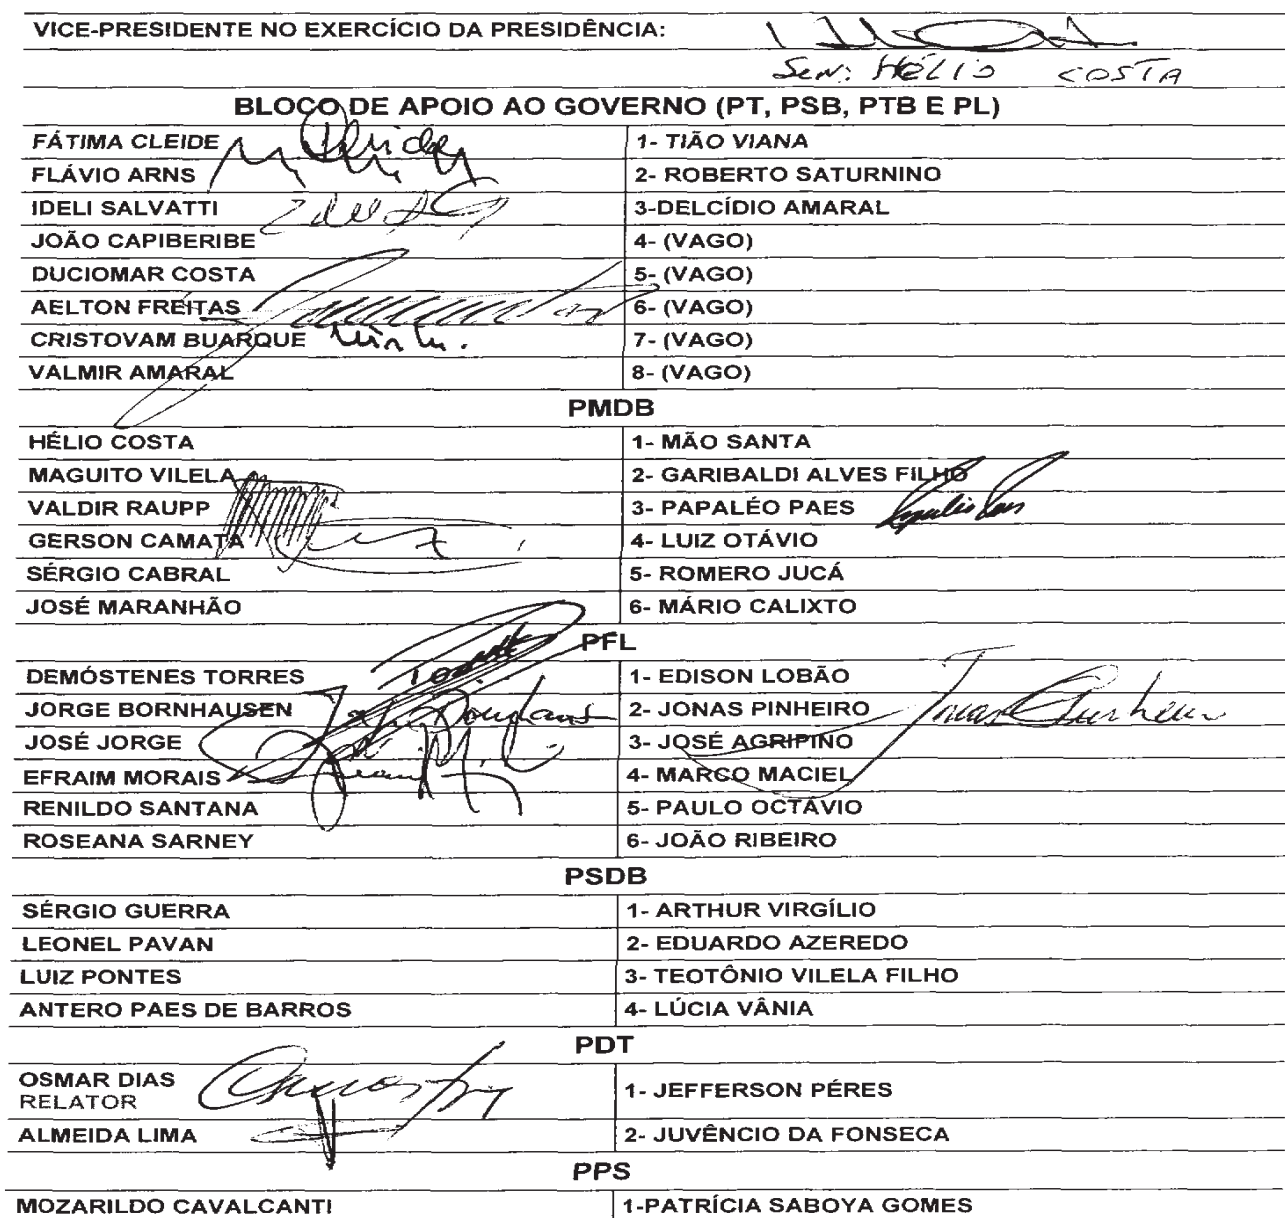 VICE-PRESIDENTE NO EXERCÍCIO DA PRESIDÊNCIA:
Sen: HÉLIO COSTA
BLOCO DE APOIO AO GOVERNO (PT, PSB, PTB E PL)
FÁTIMA CLEIDE 1- TIÃO VIANA
FLÁVIO ARNS 2- ROBERTO SATURNINO
IDELI SALVATTI 3-DELCÍDIO AMARAL
JOÃO CAPIBERIBE 4- (VAGO)
DUCIOMAR COSTA 5- (VAGO)
AELTON FREITAS 6- (VAGO)
CRISTOVAM BUARQUE 7- (VAGO)
VALMIR AMARAL 8- (VAGO)
PMDB
HÉLIO COSTA 1- MÃO SANTA
MAGUITO VILELA 2- GARIBALDI ALVES FILHO
VALDIR RAUPP 3- PAPALÉO PAES
GERSON CAMATA 4- LUIZ OTÁVIO
SÉRGIO CABRAL 5- ROMERO JUCÁ
JOSÉ MARANHÃO 6- MÁRIO CALIXTO
PFL
DEMÓSTENES TORRES 1- EDISON LOBÃO
JORGE BORNHAUSEN 2- JONAS PINHEIRO Jonas Pinheiro
JOSÉ JORGE 3- JOSÉ AGRIPINO
EFRAIM MORAIS 4- MARCO MACIEL
RENILDO SANTANA 5- PAULO OCTÁVIO
ROSEANA SARNEY 6- JOÃO RIBEIRO
PSDB
SÉRGIO GUERRA 1- ARTHUR VIRGÍLIO
LEONEL PAVAN 2- EDUARDO AZEREDO
LUIZ PONTES 3- TEOTÔNIO VILELA FILHO
ANTERO PAES DE BARROS 4- LÚCIA VÂNIA
PDT
OSMAR DIAS 1- JEFFERSON PÉRES
RELATOR
ALMEIDA LIMA 2- JUVÊNCIO DA FONSECA
PPS
MOZARILDO CAVALCANTI 1-PATRÍCIA SABOYA GOMES